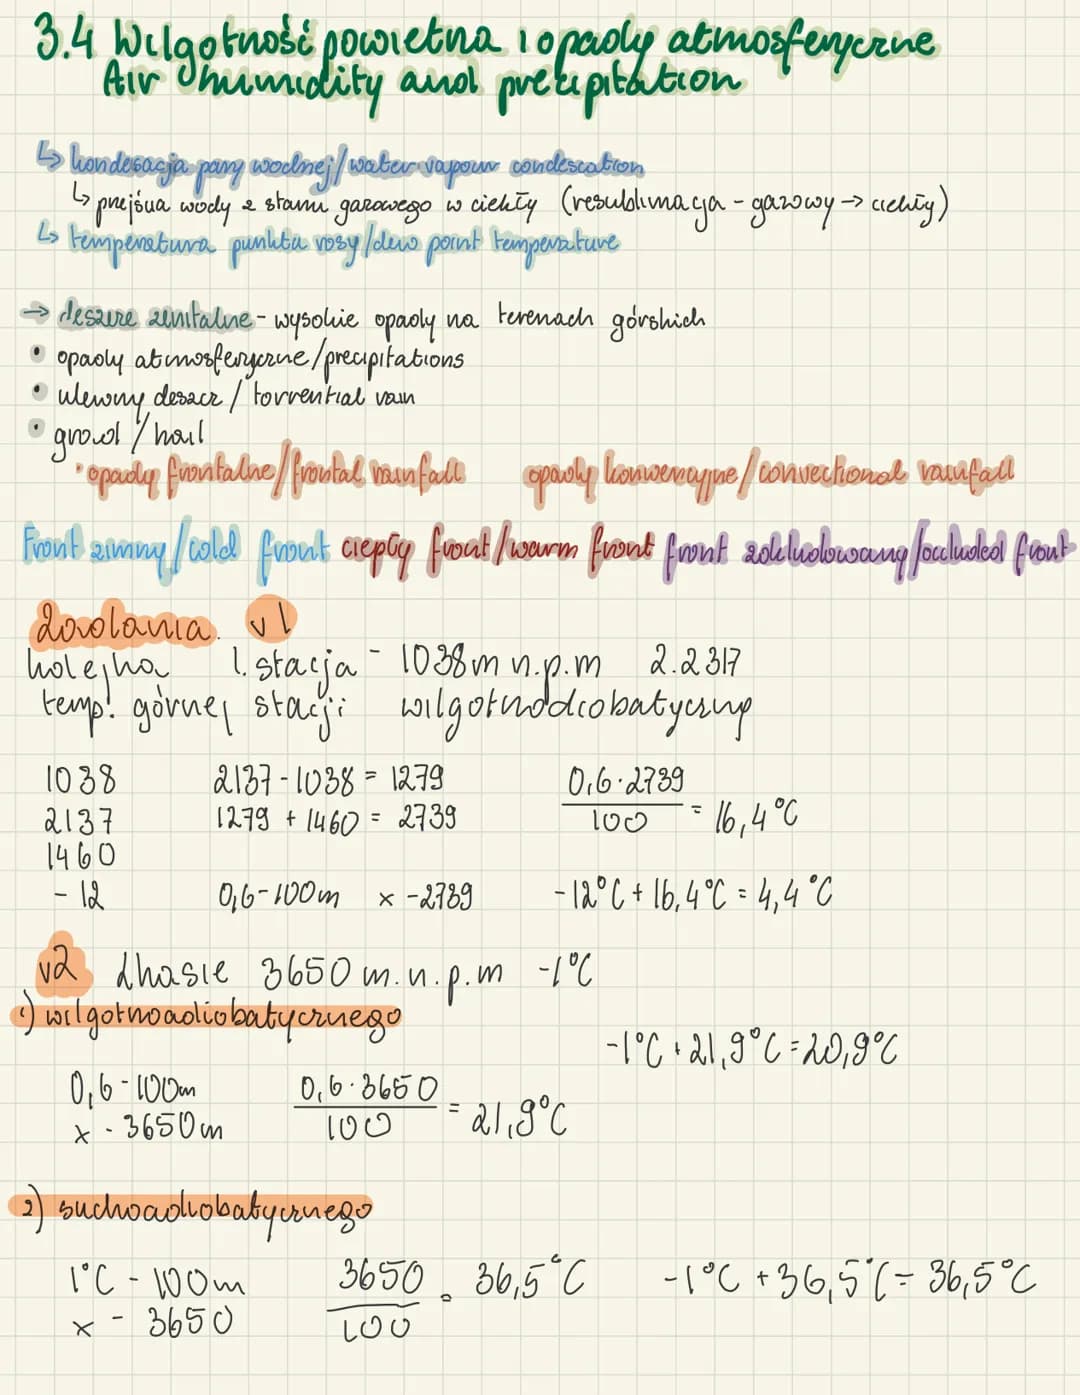 3.4 Wilgotność powietrza i opady atmosferyczne
Air humidity and precipitation
↳ kondesacja pary wodnej/water vapour condescation
↳ przejścia wody z stanu gazowego w ciekły (resublimacja - gazowy → ciekły)
↳ temperatura punktu rosy/dew point temperature
→ deszcze zenitalne - wysokie opady na terenach górskich
• opady atmosferyczne/precipitations
• ulewny deszcz / torrential rain
• grad / hail
• opady frontalne/frontal rainfall opady konwencyjne/convectional rainfall
Front zimny/cold front ciepły front/warm front front zokludowany/occluded front
Zadania v1
kolejka 1. stacja - 1038 m n.p.m 2. 2317
temp. górnej stacji
1038 2137 - 1038 = 1279 0,6·2739
2137 1279 + 1460 = 2739 100 = 16,4°C
1460
- 12 0,6 - 100m x - 2739 -12°C + 16,4°C = 4,4°C
v2 Lhasie 3650 m.n.p.m -1°C
1) wilgotnoadiobatycznego
-1°C + 21,9°C = 20,9°C
0,6 - 100m 0,6·3650
x - 3650m 100 = 21,9°C
2) suchoadiobatycznego
1°C - 100m 3650 = 36,5°C -1°C + 36,5°C = 36,5°C
x - 3650 100